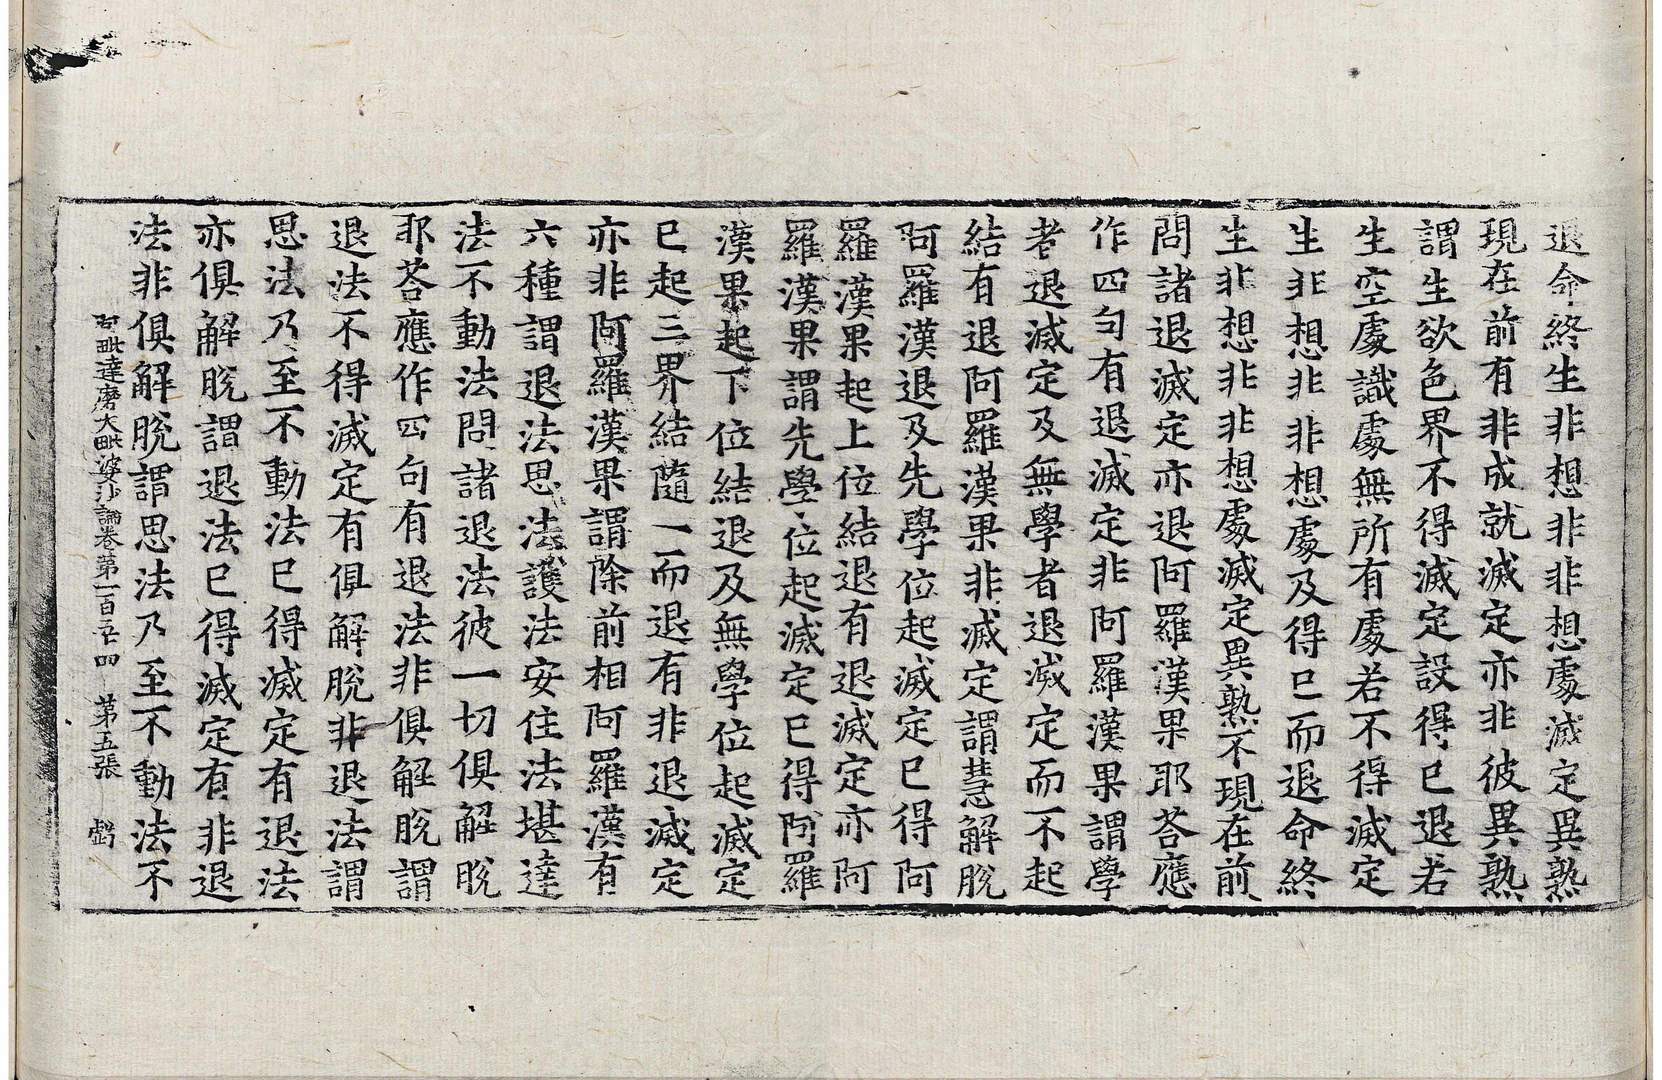 退命終生非想非非想處滅定異熟
現在前有非成就滅定亦非彼異熟
謂生欲色界不得滅定設得已退若
生空處識處無所有處若不得滅定
生非想非非想處及得已而退命終
生非想非非想處滅定異熟不現在前
問諸退滅定亦退阿羅漢果耶荅應
作四句有退滅定非阿羅漢果謂學
者退滅定及無學者退滅定而不起
結有退阿羅漢果非滅定謂慧解脫
阿羅漢退及先學位起滅定已得阿
羅漢果起上位結退有退滅定亦阿
羅漢果謂先學位起滅定已得阿羅
漢果起下位結退及無學位起滅定
已起三界結隨一而退有非退滅定
亦非阿羅漢果謂除前相阿羅漢有
六種謂退法思法護法安住法堪達
法不動法問諸退法彼一切俱解脫
耶荅應作四句有退法非俱解脫謂
退法不得滅定有俱解脫非退法謂
思法乃至不動法已得滅定有退法
亦俱解脫謂退法已得滅定有非退
法非俱解脫謂思法乃至不動法不
阿毗達磨大毗婆沙論卷第一百五十四 第五張 虧